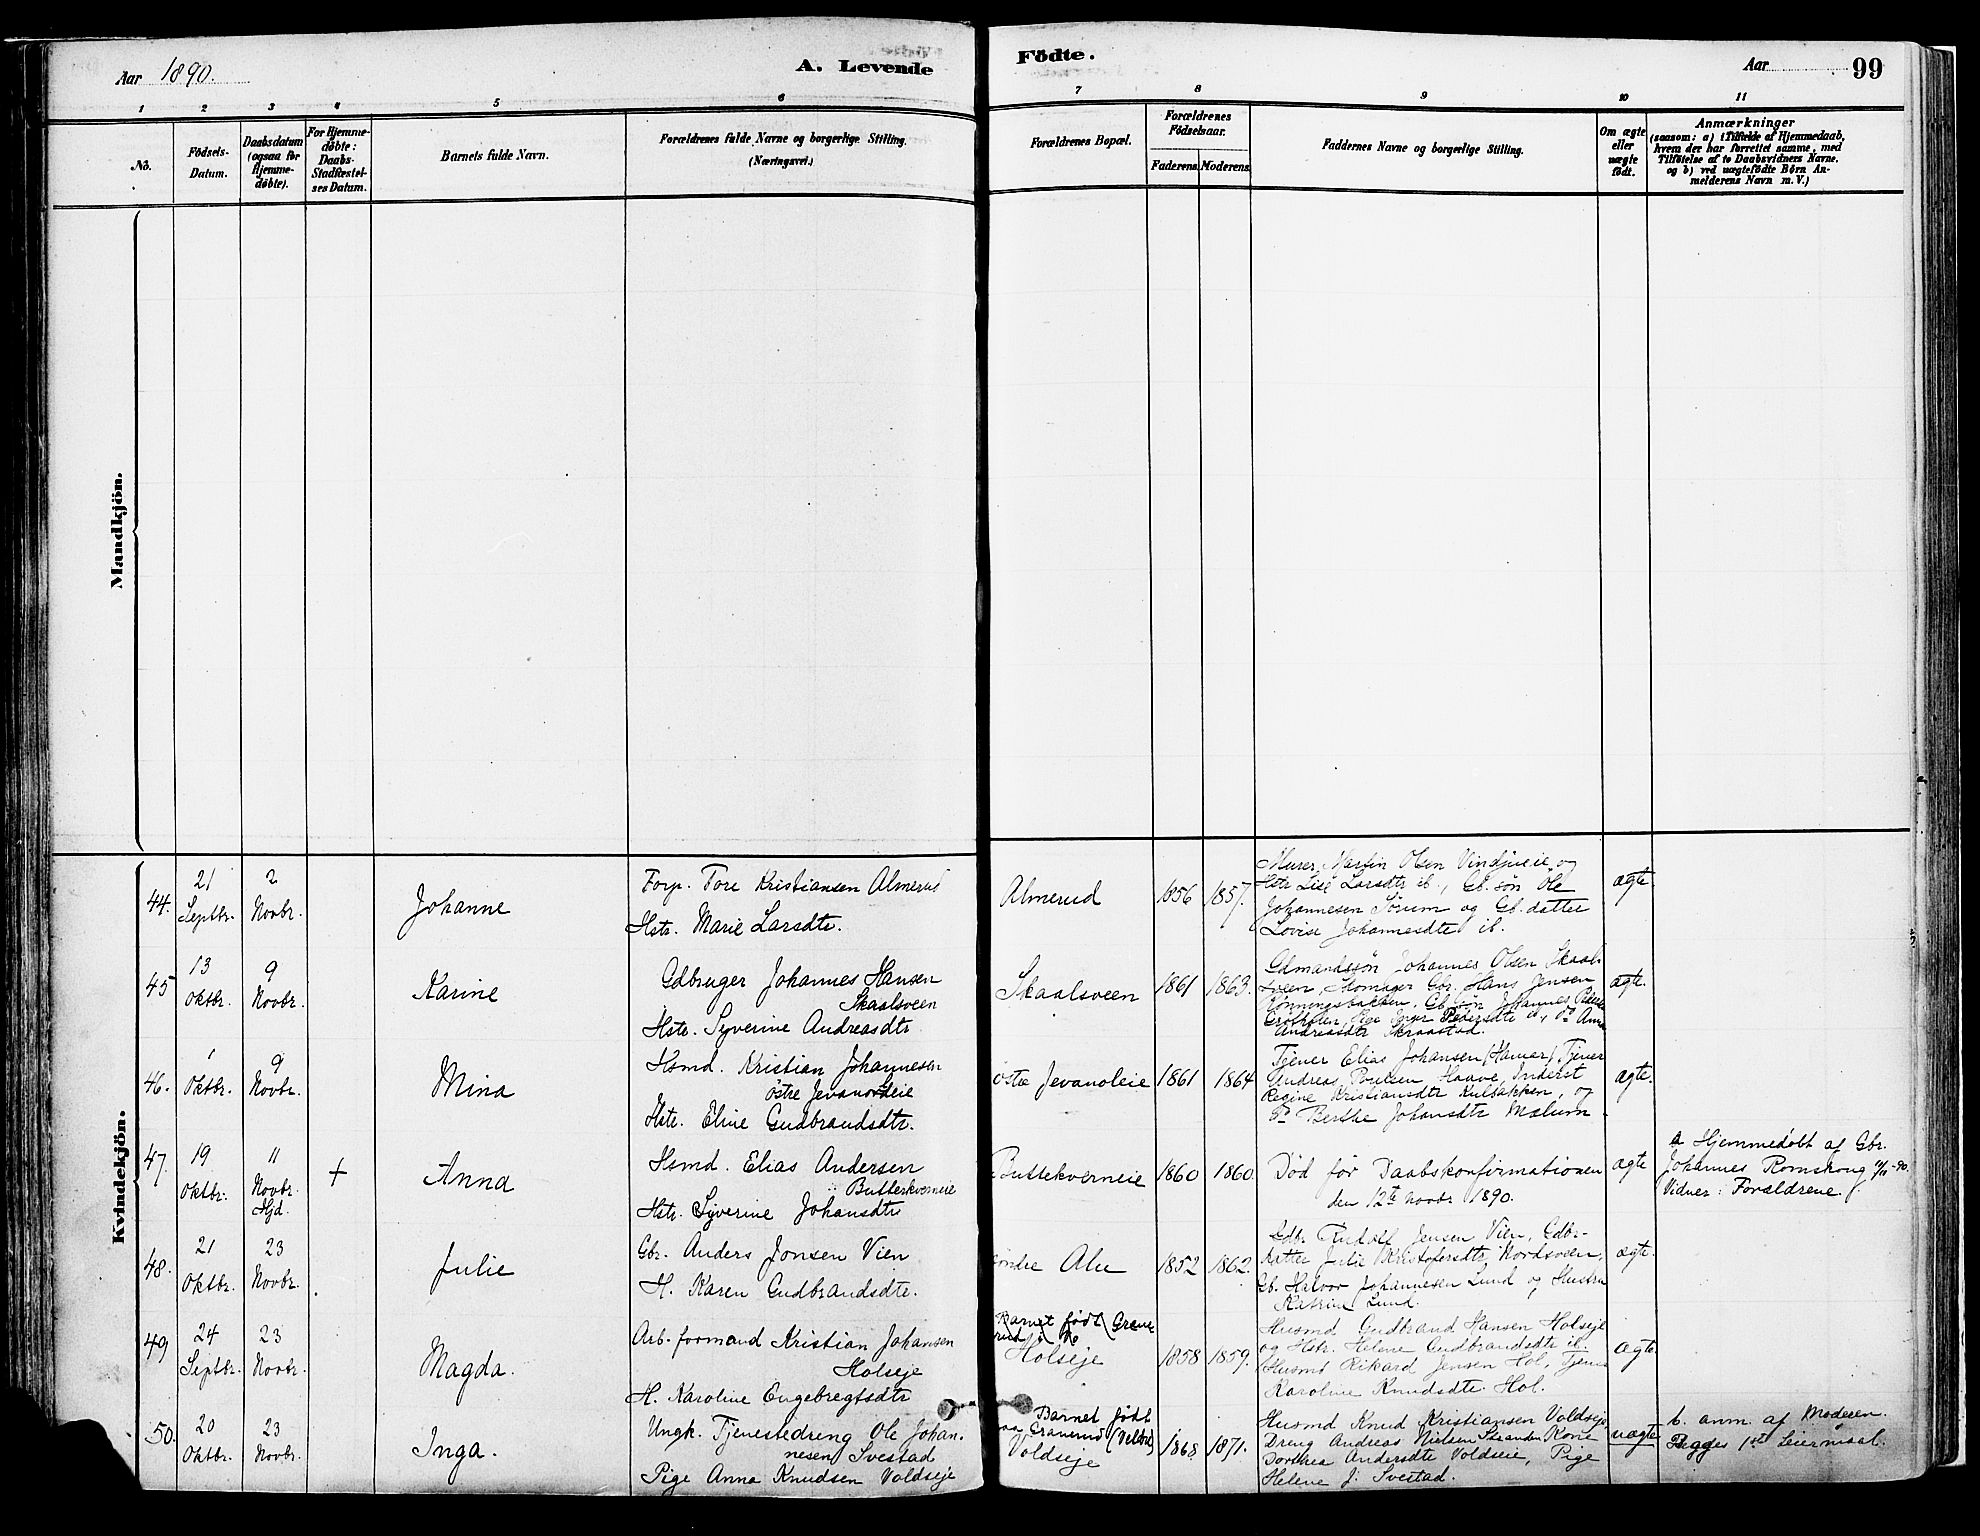 Aar 1890.
A. Levende
Födte.
Aar
99
1 2 3 4 5 6 7 8 9 10 11
No.
Födsels-
Datum.
Daabsdatum
(ogsaa for
Hjemme-
döbte).
For Hjemme-
döbte:
Daabs-
Stadfæstel-
ses Datum.
Barnets fulde Navn.
Forældrenes fulde Navne og borgerlige Stilling.
(Næringsvei.)
Forældrenes Bopæl.
Forældrenes
Födselsaar.
Faderens
Moderens
Faddernes Navne og borgerlige Stilling.
Om ægte
eller
uægte
födt.
Anmærkninger
(saasom: a) i Tilfælde af Hjemmedaab,
hvem der har forrettet samme, med
Tilföielse af to Daabsvidners Navne.
og b) ved uægtefödte Börn An-
melderens Navn m. V.)
Mandkjön.
Kvindekjön.
44.
21
Septbr.
2
Novbr.
Johanne
Forp. Tore Kristiansen Almerud
Hstr. Marie Larsdtr.
Almerud
1856
1857.
Murer Martin Olsen Vindjueie og
Hstr. Lise Larsdtr ib., Gb. søn Ole
Johannesen Sørum og Gb. datter
Lovise Johannesdtr ib.
ægte
45
13
Oktbr.
9
Novbr.
Karine
Gdbruger Johannes Hansen
Skaalsveen
Hstr. Syverine Andreasdtr
Skaalsveen
1861
1863.
Gdmandssøn Johannes Olsen Skaal-
sveen, Skomager Gbr. Hans Jensen
Rønningsbakken, Gb. søn Johannes Peders
Pige Inger Pedersdtr ib, do Anne
Andreasdtr Skraastad.
ægte.
46.
1
Oktbr.
9
Novbr.
Mina
Hsmd. Kristian Johannesen
østre Jevanoleie
Hstr. Eline Gudbrandsdtr.
østre Jevanoleie
1861
1864
Tjener Elias Johansen (Hamar) Tjener
Andreas Poulsen Haave, Inderst
Regine Kristiansdtr Kulbakken, og
Do Berthe Johansdtr Mælum
ægte.
47.
19
Oktbr.
11
Novbr.
Hjd.
+
Anna
Hsmd. Elias Andersen
Butterkverneie
Hstr. Syverine Johansdtr
Buttekverneie
1860
1860
Død før Daabskonfirmationen
den 12te Novbr 1890.
ægte
a Hjemmedøbt af Gbr.
Johannes Romskoug 11/11-90.
Vidner: Forældrene.
48.
21
Oktbr.
23
Novbr.
Julie
Gbr. Anders Jonsen Vien
H. Karen Gudbrandsdtr.
søndre Alu
1852
1862.
Gdbr. Rudolf Jensen Vien, Gdbr-
datter Julie Kristofersdtr Nordsveen,
Gb. Halvor Johannesen Lund og Hustru
Katrine Lund.
ægte.
49
24
Septbr.
23
Novbr.
Magda.
Arb.formand Kristian Johansen
Holseje
H. Karoline Engebregtsdtr
Barnet født
Holseje
1858
1859.
Husmd Gudbrand Hansen Holseje
og Hstr. Helene Gudbrandsdtr ib.
Husmd Rikard Jensen Hol, Tjener
Karoline Knudsdtr. Hol.
ægte
50.
20
Oktbr.
23
Novbr.
Inga.
Ungk. Tjenestedreng Ole Johan-
nesen Svestad
Pige Anna Knudsen Voldseje
Barnet født
paa Granerud
Voldseje
1868
1871.
Husmd Knud Kristiansen Voldseje,
Dreng Andreas Nielsen Stranden Kone
Dorthea Andersdtr Voldseie, Pige
Helene J. Svestad.
uægte
b. anm. af Moderen.
Begges 1ste Leiermaal.